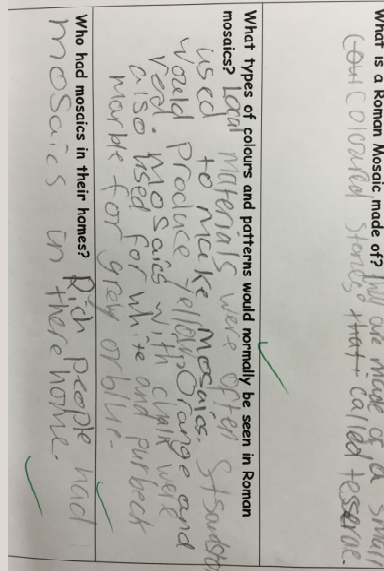 What is a Roman Mosaic made of? They are made of a small
coloured stones that called tesserae.
What types of colours and patterns would normally be seen in Roman
mosaics? Local materials were often
used to make mosaics. Standstone
would produce yellow, orange and
red. Mosaics with chalk were
also used for white and purbeck
marble for grey or blue.
Who had mosaics in their homes? Rich people had
mosaics in there home.